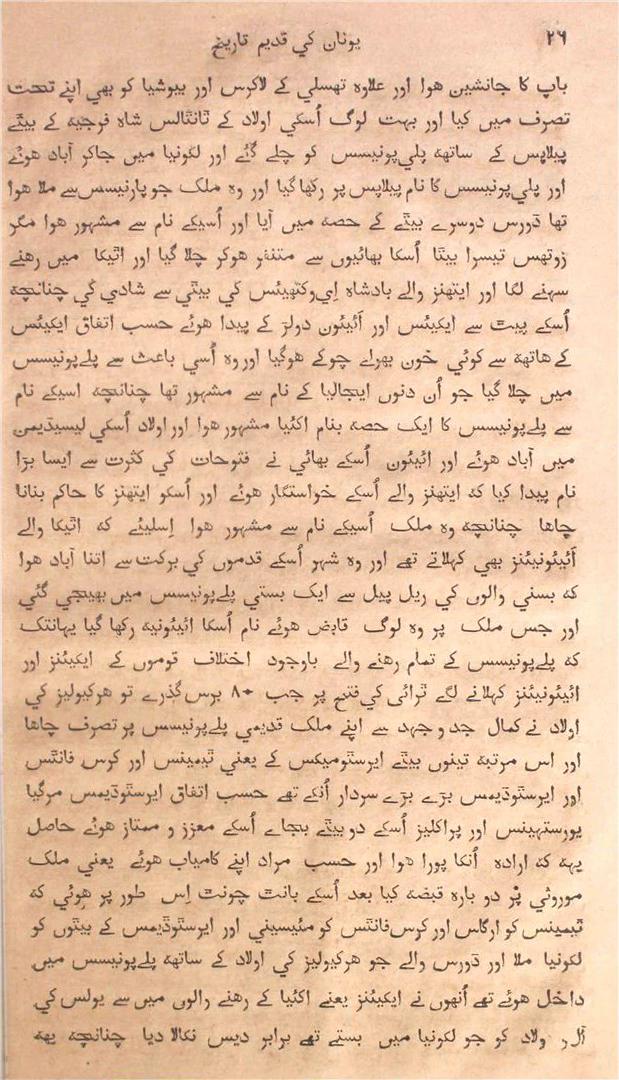 ۲۶
یونان کي قدیم تاریخ
باپ کا جانشین هوا اور علاوہ تهسلي کے لاکرس اور بیوشیا کو بهي اپنے تحت
تصرف میں کیا اور بہت لوگ اُسکي اولاد کے تانتالس شاہ فرجیه کے بیٹے
پیلاپس کے ساتهہ پلي پونیسس کو چلے گئے اور لکونیا میں جاکر آباد هوئے
اور پلي پرنیسس کا نام پیلاپس پر رکها گیا اور وہ ملک جو پارنیسس سے ملا هوا
تها ڈورس دوسرے بیٹے کے حصہ میں آیا اور اُسیکے نام سے مشہور هوا مگر
زوتهس تیسرا بیٹا اُسکا بهائیوں سے متنفر هوکر چلا گیا اور اٹیکا میں رهنے
سہنے لگا اور ایتهنز والے بادشاہ اِي وکتهیئس کي بیٹي سے شادي کي چنانچہ
اُسکے پیٹ سے ایکیئس اور آئیئون دولڑ کے پیدا هوئے حسب اتفاق ایکیئس
کے هاتهہ سے کوئي خون بهراے چوکے هوگیا اور وہ اُسي باعث سے پلے پونیسس
میں چلا گیا جو اُن دنوں ایجالیا کے نام سے مشہور تها چنانچہ اسیکے نام
سے پلے پونیسس کا ایک حصہ بنام اکئیا مشہور هوا اور اولاد اُسکي لیسیڈیمن
میں آباد هوئے اور ائیئون اُسکے بهائي نے فتوحات کي کثرت سے ایسا بڑا
نام پیدا کیا کہ ایتهنز والے اُسکے خواستگار هوئے اور اُسکو ایتهنز کا حاکم بنانا
چاها چنانچہ وہ ملک اُسیکے نام سے مشہور هوا اِسلیئے کہ اٹیکا والے
آئیئونیئنز بهي کہلاتے تهے اور وہ شہو اُسکے قدموں کي برکت سے اتنا آباد هوا
کہ بسنی والوں کي ریل پیل سے ایک بستي پلے پونیسس میں بهیجي گئي
اور جس ملک پر وہ لوگ قابض هوئے نام اُسکا ائیئونیہ رکها گیا یہانتک
کہ پلے پونیسس کے تمام رهنے والے باوجود اختلاف قوموں کے ایکیئنز اور
ائیئونیئنز کہلانے لگے ٹرائی کي فتح پر جب ۸۰ برس گذرے تو هرکیولیز کي
اولاد نے کمال جد و جہد سے اپنے ملک قدیمي پلے پرنیسس پر تصرف چاها
اور اس مرتبہ تینوں بیٹے ایرسٹومیکس کے یعني ٹیمینس اور کرس فانٹس
اور ایرسٹوڈیمس بڑے بڑے سردار اُنکے تهے حسب اتفاق ایرسٹوڈیمس مرگیا
یورستهینس اور پراکلیز اُسکے دو بیٹے بجاے اُسکے معزز و ممتاز هوئے حاصل
یہہ کہ ارادہ اُنکا پورا هوا اور حسب مراد اپنے کامیاب هوئے یعني ملک
موروثي پر دو بارہ قبضہ کیا بعد اُسکے بانٹ چونٹ اِس طور پر هوئي کہ
ٹیمینس کو ارگاس اور کرس فانٹس کو مئیسیني اور ایرسٹوڈیمس کے بیٹوں کو
لکونیا ملا اور ڈورس والے جو هرکیولیز کي اولاد کے ساتهہ پلے پونیسس میں
داخل هوئے تهے اُنهوں نے ایکیئنز یعنے اکئیا کے رهنے رالوں میں سے یولس کي
آل و ولاد کو جو لکونیا میں بستے تهے برابر دیس نکالا دیا چنانچہ یهہ